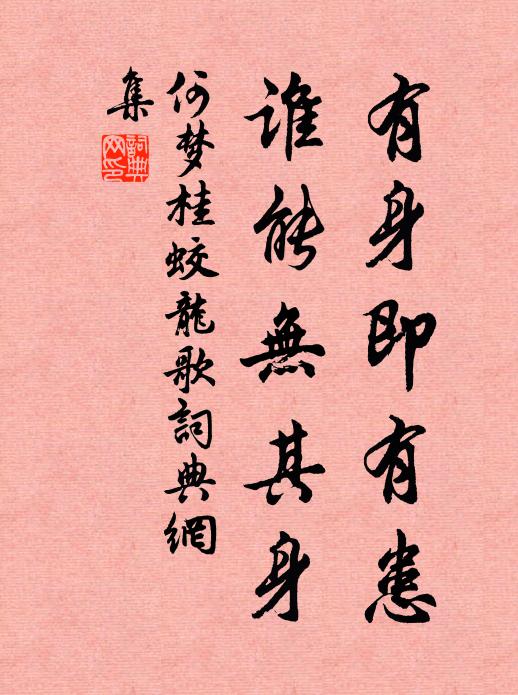 有身即有患
誰能無其身
何梦桂蛟龍歌詞典網
集
詞典
网印